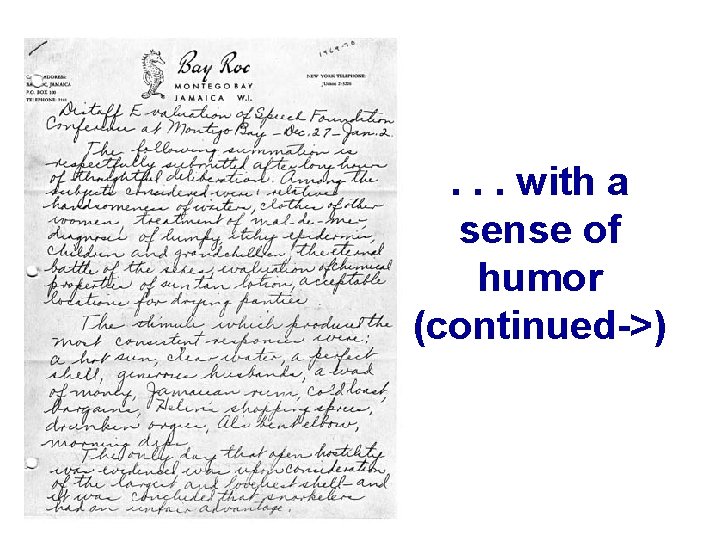 1969-70
Bay Roc
MONTEGO BAY
JAMAICA W.I.
NEW YORK TELEPHONE:
JAMAICA
P.O. BOX 100
TELEPHONE:
Distaff Evaluation of Speech Foundation
Conference at Montego Bay - Dec. 27 - Jan. 2.
The following summation is
respectfully submitted after long hours
of thoughtful deliberation. Among the
subjects considered were: relative
handsomeness of waiters, clothes of other
women, treatment of mal-de-mer,
diagnosis of lumpy itchy epidermis,
children and grandchildren, the eternal
battle of the sexes, evaluation of chemical
properties of sun tan lotion, acceptable
locations for drying panties.
The stimuli which produced the
most consistent responses were:
a hot sun, clear water, a perfect
shell, generous husbands, a wad
of money, Jamaican rum, cold toast,
bargains, shopping sprees,
drunken orgies, elbow,
morning dips.
The only day that open hostility
was evidenced was upon consideration
of the largest and loveliest shell - and
it was concluded that snorkelers
had an unfair advantage.
. . . with a
sense of
humor
(continued->)